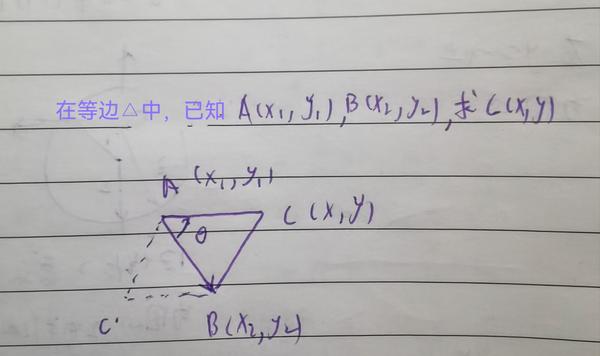 在等边△中，已知 A(x₁, y₁), B(x₂, y₂), 求 C(x, y)
A (x₁, y₁)
C (x, y)
θ
C'
B(x₂, y₂)